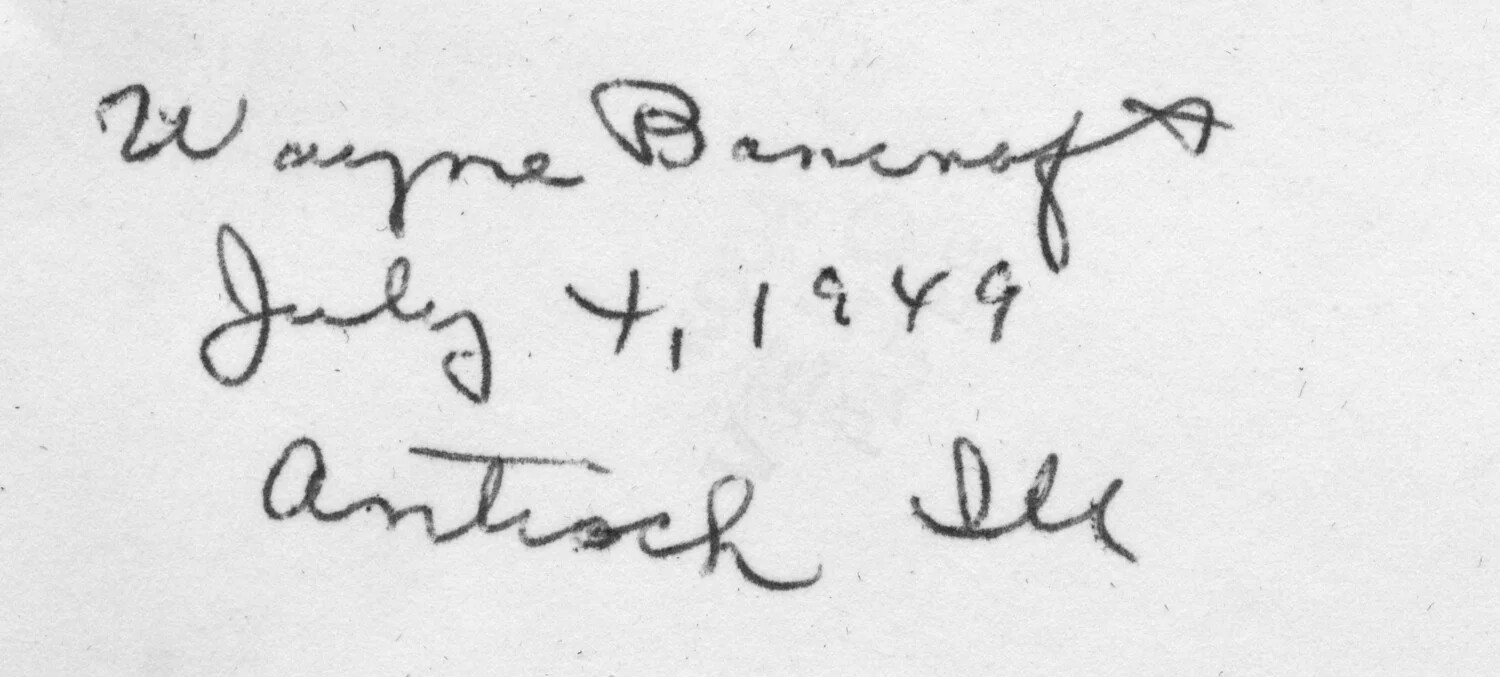 Wayne Bancroft
July 4, 1949
Antioch Ill